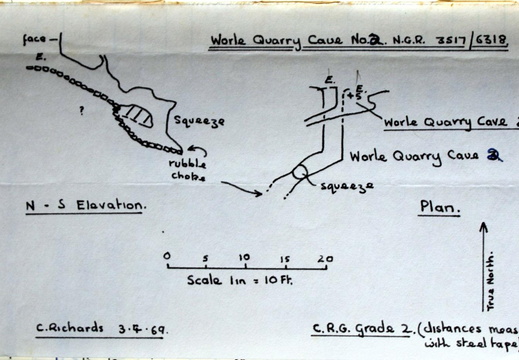 Worle Quarry Cave No.2. N.G.R. 3517/6318
face
E.
?
Squeeze
rubble
choke
E.
E
S
Worle Quarry Cave
Worle Quarry Cave 2
squeeze
N - S Elevation.
Plan.
True North.
0 5 10 15 20
Scale 1in = 10 Ft.
C.Richards 3.4.69.
C.R.G. Grade 2. (distances meas
with steel tape